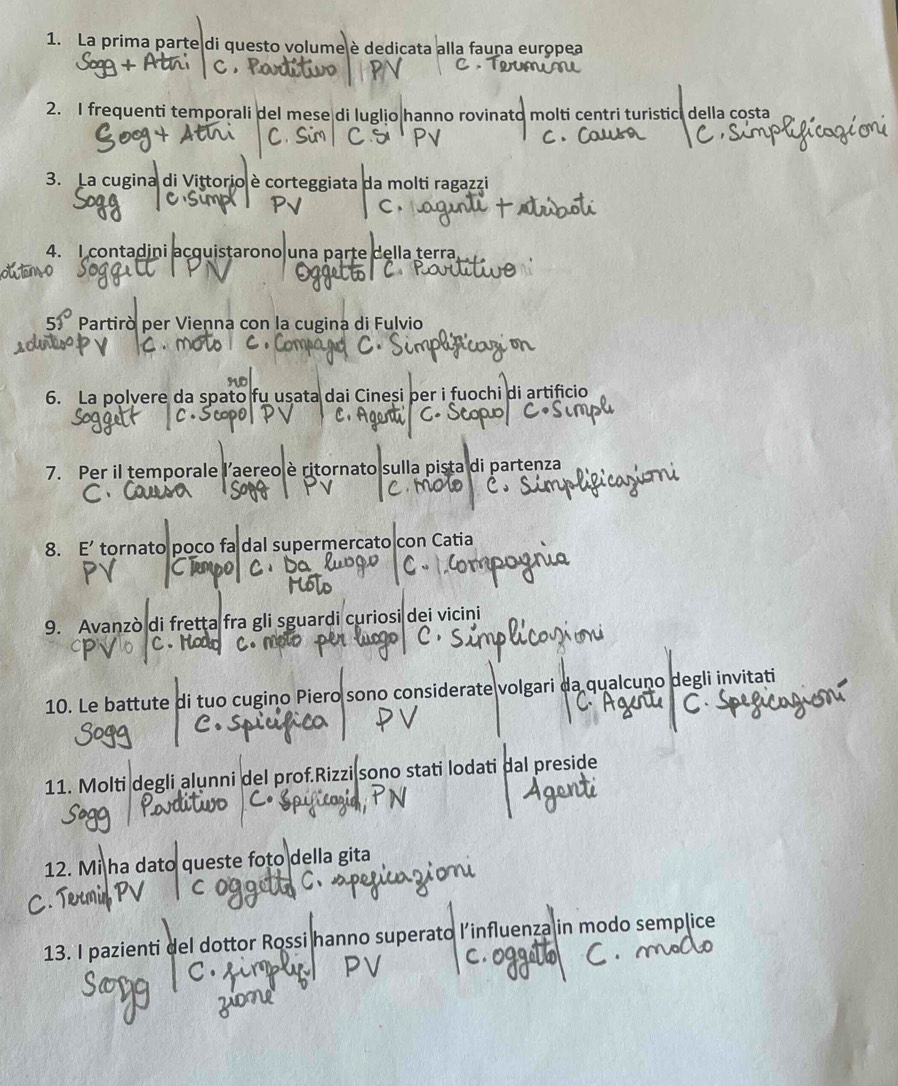 1. La prima parte di questo volume è dedicata alla fauna europea
Sogg + Attri | C. Partitivo | PV | C. Termine
2. I frequenti temporali del mese di luglio hanno rovinato molti centri turistici della costa
Sogg + Attri | C. Sim | C. Si | PV C. Causa | C. Simplificazioni
3. La cugina di Vittorio è corteggiata da molti ragazzi
Sogg | C. Simpl | PV | C. agenti + atriboti
4. I contadini acquistarono una parte della terra
Soggitt | PN | Oggetto | C. Partitivo
5. Partirò per Vienna con la cugina di Fulvio
PV | C. moto | C. Compagd C. Simplificazion
no
6. La polvere da spato fu usata dai Cinesi per i fuochi di artificio
Soggett | C. Scopo | PV | C. Agenti | C. Scopo | C. Simpli
7. Per il temporale l'aereo è ritornato sulla pista di partenza
C. Causa | Sogg | PV | C. moto | C. Simplificazioni
8. E' tornato poco fa dal supermercato con Catia
PV | C Tempo | C. Da luogo | C. compagnia
Moto
9. Avanzò di fretta fra gli sguardi curiosi dei vicini
PV | C. Modo C. moto per luogo | C. Simplicazioni
10. Le battute di tuo cugino Piero sono considerate volgari da qualcuno degli invitati
Sogg | C. Spicifica | PV | C. Agente | C. Speficazioni
11. Molti degli alunni del prof.Rizzi sono stati lodati dal preside
Sogg | Parditivo | C. Spificazio, PN | Agenti
12. Mi ha dato queste foto della gita
C. Termin | PV | C oggetto C. speficazioni
13. I pazienti del dottor Rossi hanno superato l'influenza in modo semplice
Sogg | C. simplifi | PV | C. oggetto | C. modo
zione